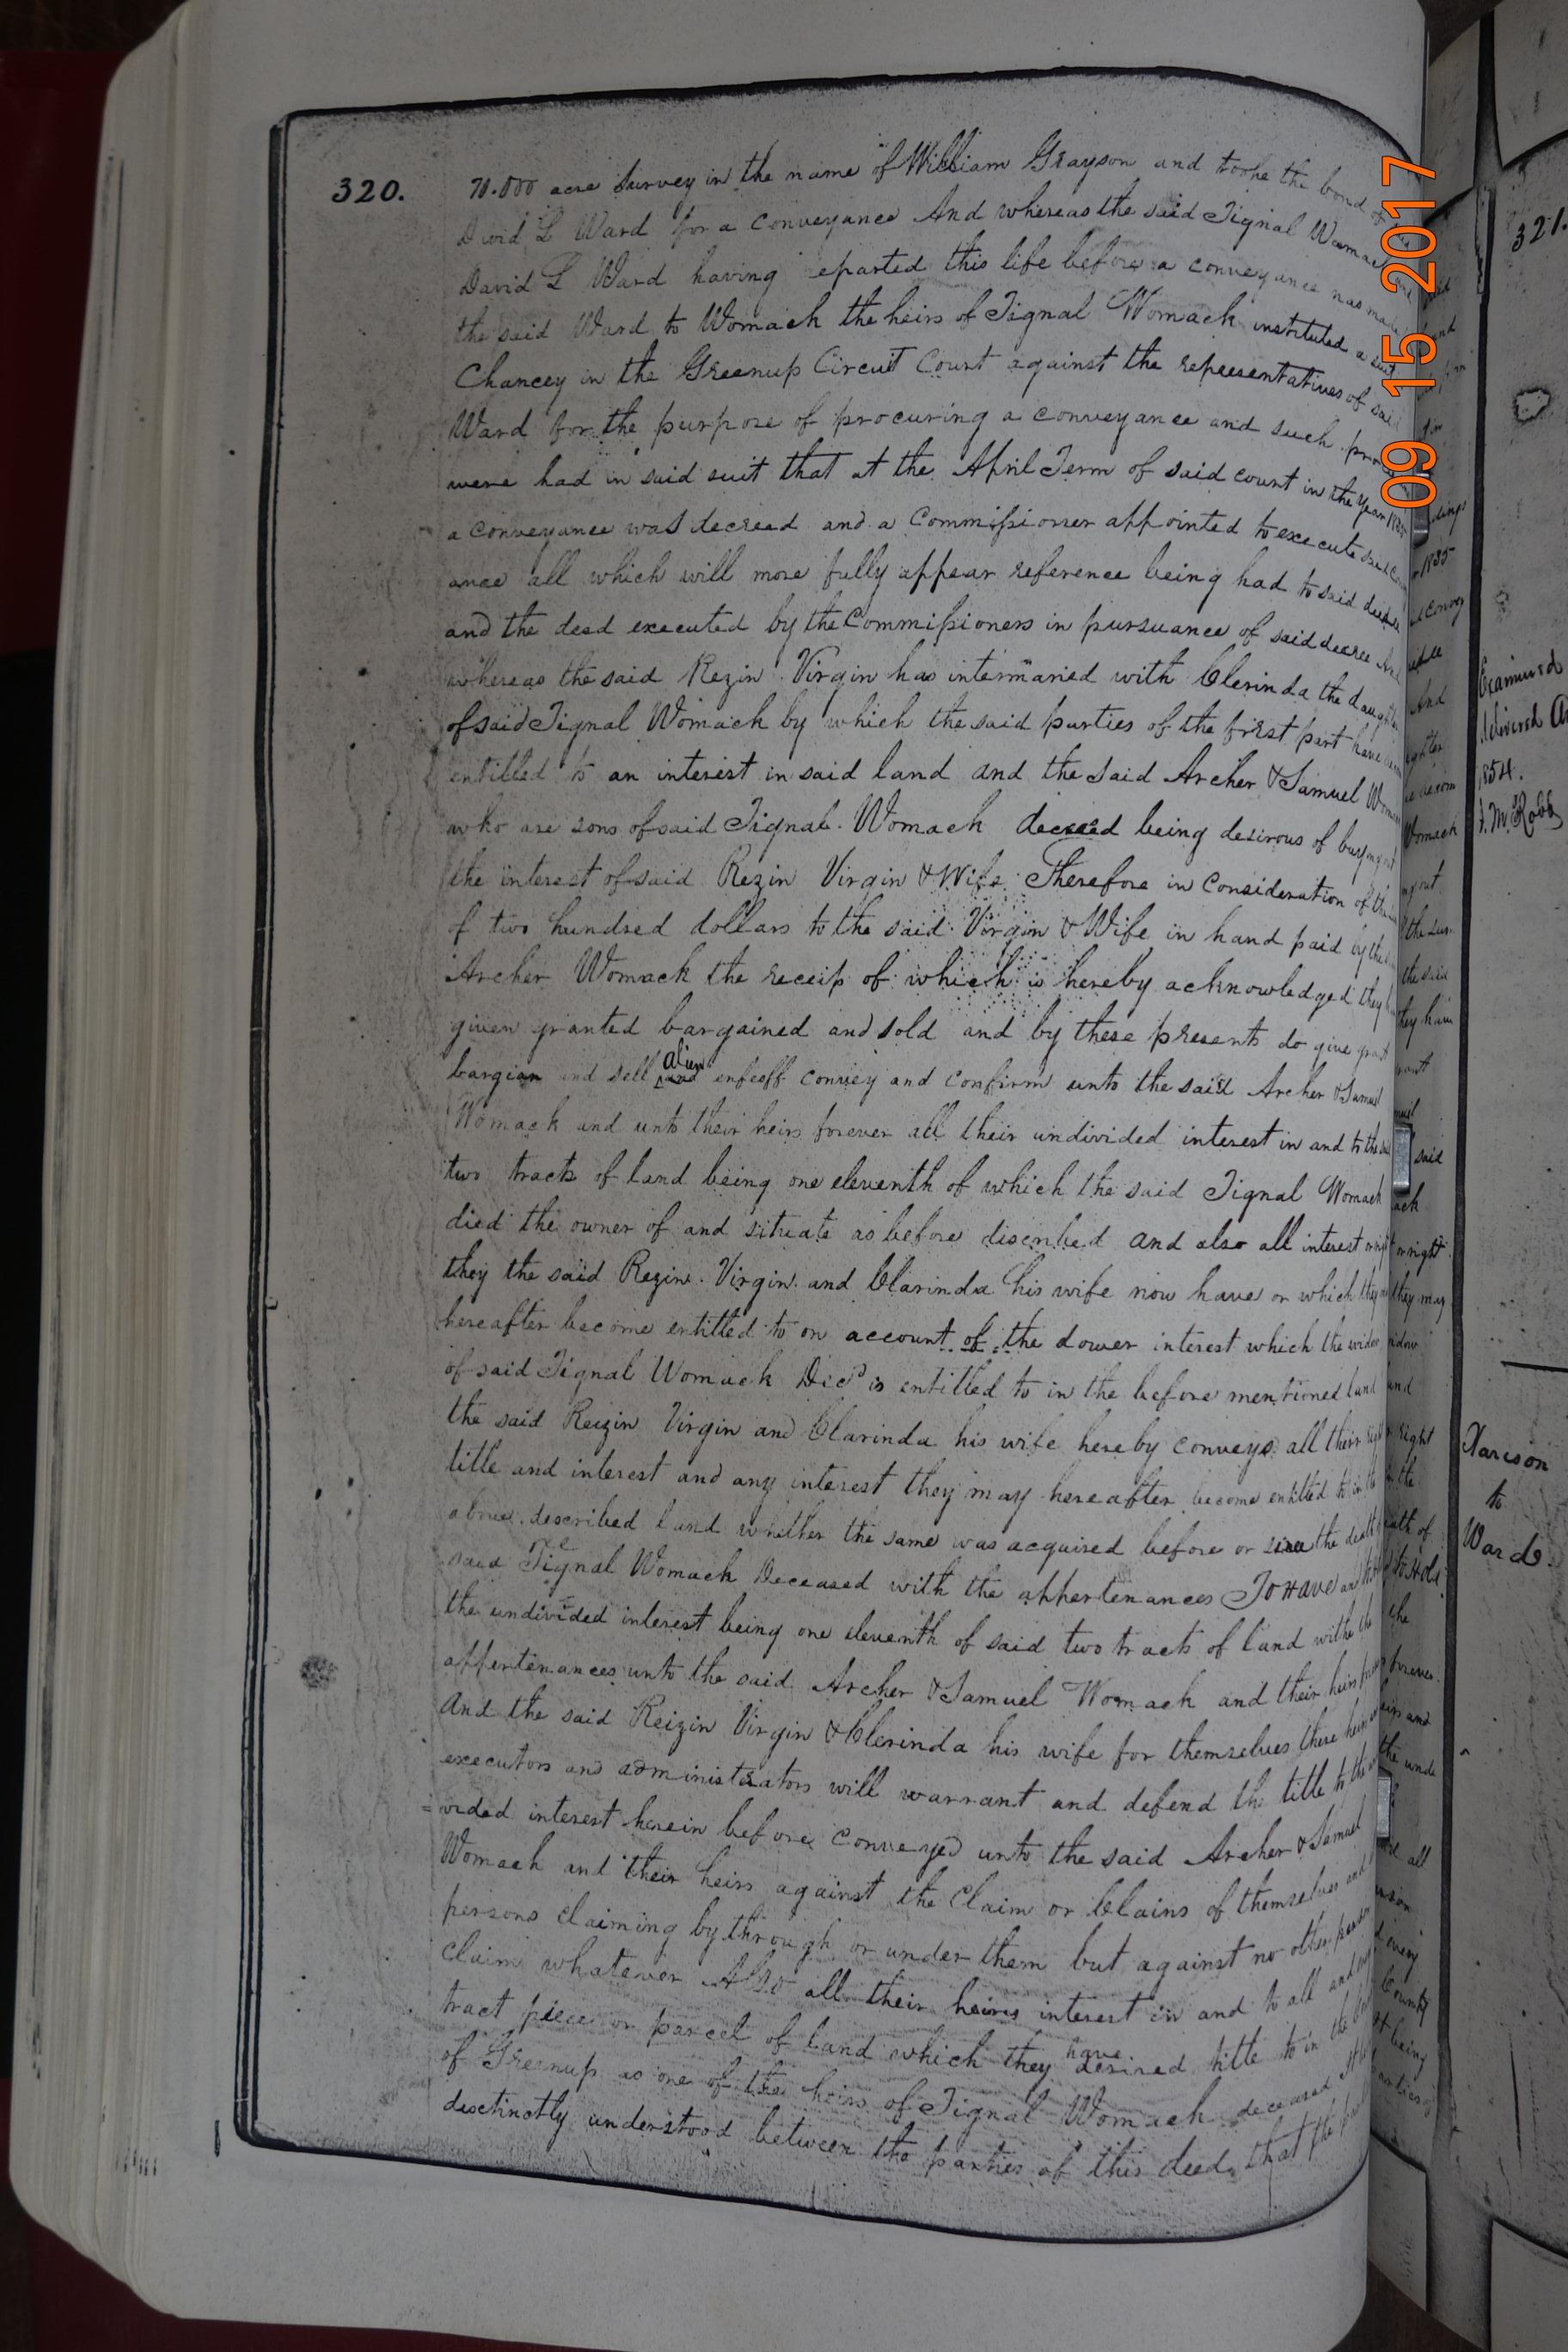 320.
70.000 acre Survey in the name of William Grayson and tooke the bond of
David L Ward for a conveyance And whereas the said Tignal Womack and
David L Ward having eparted this life before a conveyance was made
the said Ward to Womack the heirs of Tignal Womack instituted a suit
Chancey in the Greenup Circuit Court against the representatives of said
Ward for the purpose of procuring a conveyance and such
were had in said suit that at the April Term of said court in the year 1835
a conveyance was decreed and a Commissioner appointed to execute said
ance all which will more fully appear reference being had to said
and the deed executed by the Commissioners in pursuance of said decree And
whereas the said Rezin Virgin has intermaried with Clerinda the daughter
of said Tignal Womack by which the said parties of the first part have
entitled to an interest in said land and the said Archer & Samuel Womack
who are sons of said Tignal Womack deceed being desirous of buying out
the interest of said Rezin Virgin & Wife Therefore in Consideration of the
of two hundred dollars to the said Virgin & Wife in hand paid by the said
Archer Womack the receip of which is hereby acknowledged they have
given granted bargained and sold and by these presents do give grant
bargian and sell alien enfeoff convey and confirm unto the said Archer & Samuel
Womack and unto their heirs forever all their undivided interest in and to the said
two tracts of land being one eleventh of which the said Tignal Womack
died the owner of and situate as before discribed and also all interest or right
they the said Rezin Virgin and Clarinda his wife now have or which they may
hereafter become entitled to on account of the dower interest which the widow
of said Tignal Womack Decd is entitled to in the before mentioned land and
the said Reizin Virgin and Clarinda his wife hereby conveys all their right
title and interest and any interest they may hereafter become entitled to in the
above described land whether the same was acquired before or since the death of
said Tignal Womack Deceased with the appertenances To Have and to Hold
the undivided interest being one eleventh of said two tracts of land withe the
appertenances unto the said Archer & Samuel Womack and their heirs forever
And the said Reizin Virgin & Clerinda his wife for themselves there heirs and
executors and administrators will warrant and defend the title to the unde
=vided interest herein before conveyed unto the said Archer & Samuel
Womack and their heirs against the Claim or Clains of themselves and all
persons claiming by through or under them but against no other person
claim whatever Also all their heires interest in and to all and every
tract piece or parcel of land which they have desired title to in the County
of Greenup as one of the heirs of Tignal Womack deceased it being
desctinctly understood between the parties of this deed that the
321.
Examined
delivered
1854.
Harison
to
Ward
09 15 2017